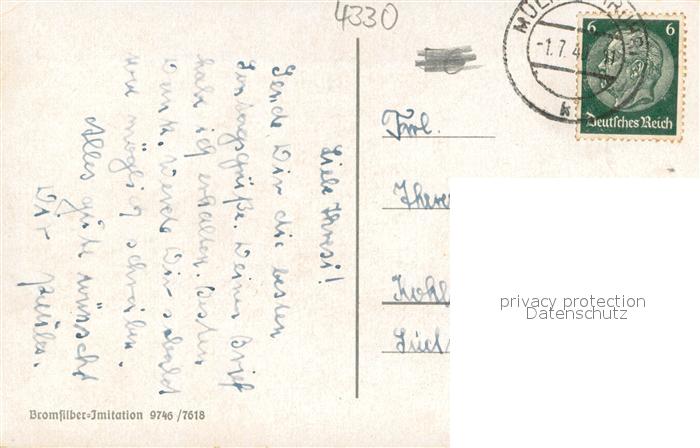 4330
MÜL
-1.7.4
k
6 6
Deutsches Reich
Liebe Thresi!
Sende Dir die besten
Sontagsgrüße. Deinen Brief
habe ich erhalten. Besten
Dank. Werde Dir sobald
wie möglig schreiben.
Alles gute wünscht
Dir
Frl.
There
Kohl
privacy protection
Datenschutz
Bromsilber=Imitation 9746/7618